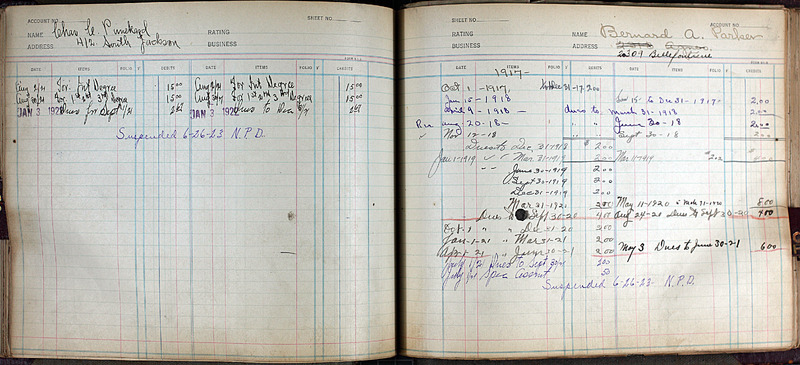 ACCOUNT NO.
SHEET NO.
NAME Chas. C. Punchard
RATING
ADDRESS 412 South Jackson
BUSINESS
DATE ITEMS FOLIO ✓ DEBITS DATE ITEMS FOLIO ✓ CREDITS
Aug 2/21 For 1st Degree 15.00 Aug 2/21 For 1st Degree 15.00
For 1st 2nd 3rd Degree 15.00 For 1st 2nd 3rd Degree 15.00
JAN 3 1922 Dues for JAN 3 Dues to Dec
Suspended 6-26-23 N.P.D.
SHEET NO.
ACCOUNT NO.
RATING
NAME Bernard A. Parker
BUSINESS
ADDRESS
2309 Bellefontaine
DATE ITEMS FOLIO ✓ DEBITS DATE ITEMS FOLIO ✓ CREDITS
1917-
Oct 1-1917. Dec 31-17 2.00
Jan 15-1918 to Dec 31-1917 2.00
April 9-1918 dues to March 31-1918 2.00
Aug 20-18 " " June 30-18 2.00
✓ Nov 12-18 " " Sept 30-18 2.00
Dues to Dec 31-1918 $ 2.00
Jan 1-1919 " " Mar 31-1919 2.00 Mar 11-1919
" " June 30-1919 2.00
" Sept 30-1919 2.00
Dec 31-1919 2.00
Mar 31-1920 2.00 May 11-1920 8.00
Dues to Sept 30-20 4.00 Aug 24-21 Dues to Sept 30-20 4.00
Oct-1 " " Dec 31-20 2.00
Jan-1-21 " Mar 31-21 2.00
Apr-1-21 " June 30-21 2.00 May 3 Dues to June 30-21 6.00
July 1/21 Dues to Sept 30/21
July for Spec Assmt 50
Suspended 6-26-23- N.P.D.